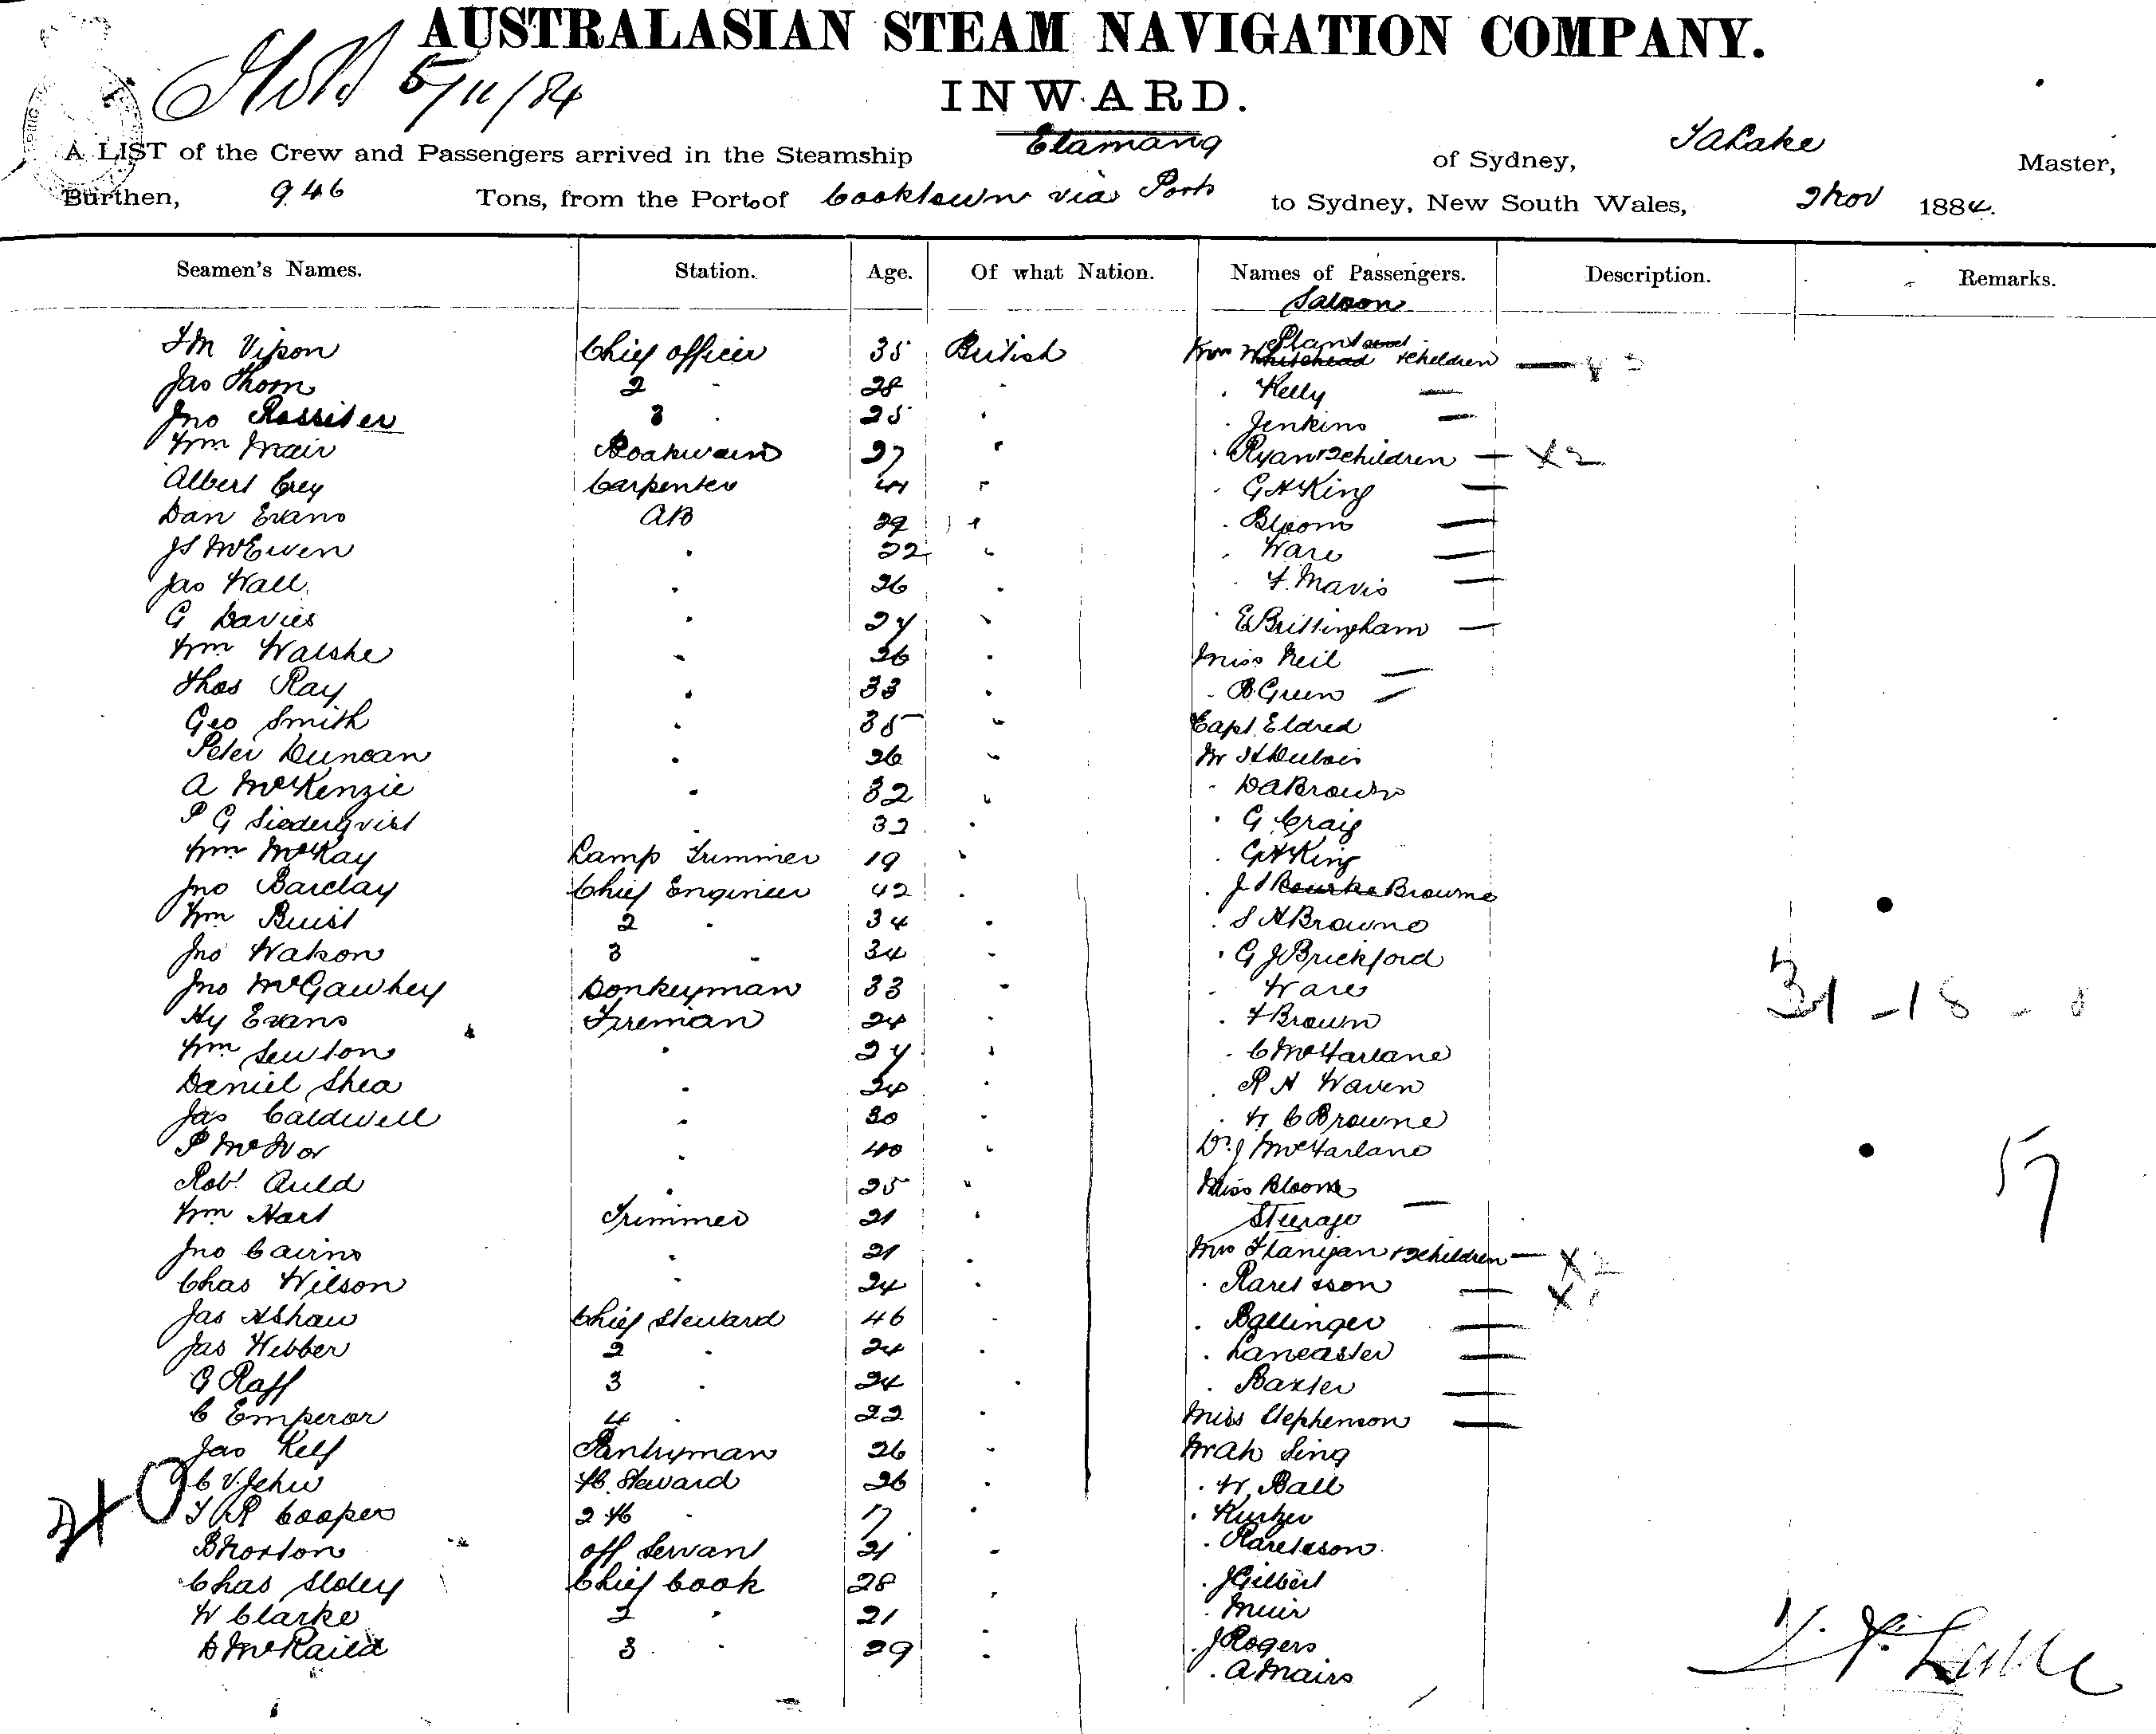 AUSTRALASIAN STEAM NAVIGATION COMPANY.
5/11/84
INWARD.
A LIST of the Crew and Passengers arrived in the Steamship Elamang of Sydney, T A Lake Master,
Burthen, 946 Tons, from the Port of Cooktown via Ports to Sydney, New South Wales, 2 Nov 1884.
Seamen's Names. Station. Age. Of what Nation. Names of Passengers. Description. Remarks.
Saloon
Plant
T M Vipon Chief Officer 35 British Mrs Whitehead & children
Jas Thom 2 " 28 " " Kelly —
Jno Rossiter 3 " 25 " " Jenkins —
Wm Mair Boatswain 27 " " Ryan & 2 children — X 2
Albert Grey Carpenter 41 " " G H King —
Dan Evans AB 29 " " Bloom —
Js McEwen " 22 " " Ware —
Jas Wall " 26 " " F. Mavis —
G Davies " 24 " " E Brittingham —
Wm Walshe " 26 " Miss Neil —
Thos Ray " 33 " " B Green —
Geo Smith " 35 " Capt Eldred
Peter Duncan " 26 " Mr Dubois
A McKenzie " 32 " " D A Brown
P G Siederqvist " 32 " " G Craig
Wm McKay Lamp Trimmer 19 " " G H King
Jno Barclay Chief Engineer 42 " " J T Rourke Browne
Wm Buist 2 " 34 " " S H Browne
Jno Watson 3 " 34 " " G J Brickford
Jno McGawhey Donkeyman 33 " " Ware
Hy Evans Fireman 24 " " F Brown
Wm Sewton " 24 " " C McFarlane
Daniel Shea " 24 " " R H Waven
Jas Caldwell " 30 " " W C Browne
P McIvor " 40 " Dr J McFarlane
Robt Auld " 25 " Miss Bloom —
Wm Hart Trimmer 21 " Steerage
Jno Cairns " 21 " Mrs Flanigan & 2 children — X 2
Chas Wilson " 24 " " — X 1
Jas A Shaw Chief Steward 46 " " Ballinger —
Jas Webber 2 " 24 " " Lancaster —
G Raff 3 " 24 " " Baxter —
C Emperor 4 " 22 " Miss Stephenson —
Jas Kelf Pantryman 26 " Mr Ah Sing
C V Jehu Steward 26 " " W. Ball
T R Cooper 2 17 " "
B Norton Off Servant 21 " "
Chas Sldey Chief Cook 28 " " J Gilbert
W Clarke 2 " 21 " " Muir
D McRaild 3 " 29 " " J Rogers
" A Mairs
31 - 18
57
40
T. A. Lake